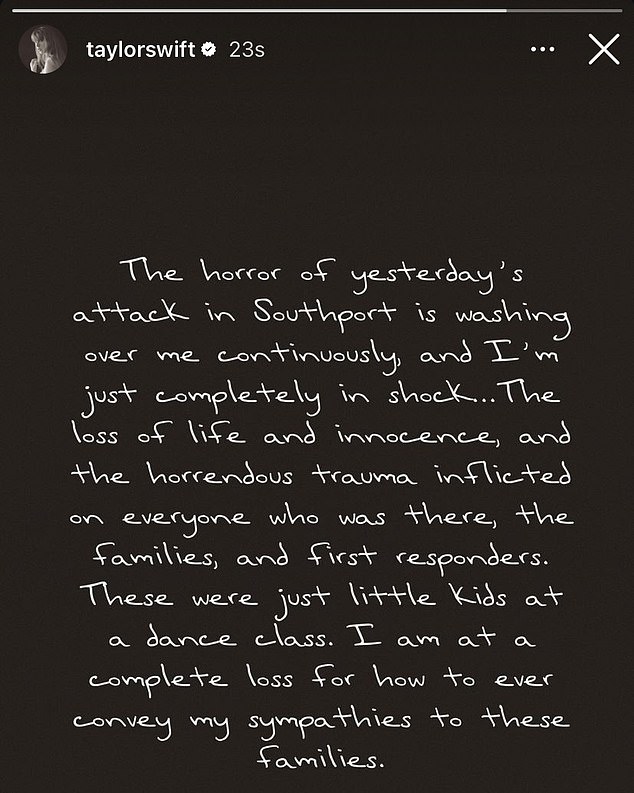 taylorswift 23s
The horror of yesterday's
attack in Southport is washing
over me continuously, and I'm
just completely in shock...The
loss of life and innocence, and
the horrendous trauma inflicted
on everyone who was there, the
families, and first responders.
These were just little kids at
a dance class. I am at a
complete loss for how to ever
convey my sympathies to these
families.